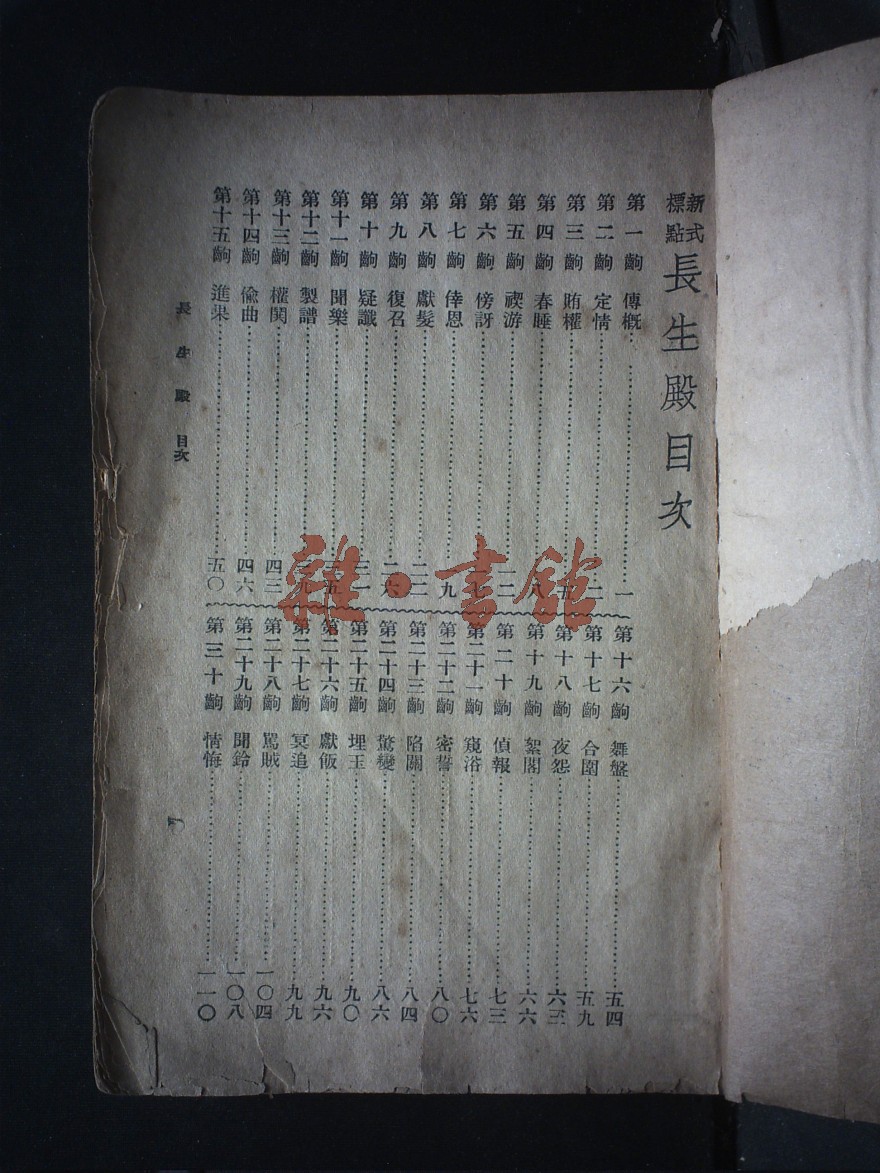 新式標點 長生殿目次
第一齣 傳概 一
第二齣 定情 二
第三齣 賄權 五
第四齣 春睡 八
第五齣 禊游 一二
第六齣 傍訝
第七齣 倖恩 一九
第八齣 獻髮 二二
第九齣 復召 二六
第十齣 疑讖 三一
第十一齣 聞樂 三五
第十二齣 製譜 三九
第十三齣 權鬨 四三
第十四齣 偸曲 四六
第十五齣 進果 五〇
第十六齣 舞盤 五四
第十七齣 合圍 五九
第十八齣 夜怨 六三
第十九齣 絮閣 六六
第二十齣 偵報 七三
第二十一齣 窺浴 七六
第二十二齣 密誓 八〇
第二十三齣 陷關 八四
第二十四齣 驚變 八六
第二十五齣 埋玉 九〇
第二十六齣 獻飯 九六
第二十七齣 冥追 九九
第二十八齣 罵賊 一〇四
第二十九齣 聞鈴 一〇八
第三十齣 情悔 一一〇
長生殿 目次
雜·書館